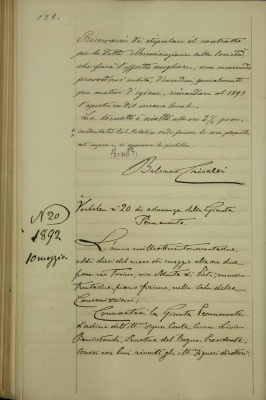 138.
Riservarsi di stipulare il contratto
per la detta illuminazione colla Società
che farà l'offerta migliore, non essendo
provvedervi subito, dovendosi, specialmente
per motivi d'igiene, rimandare al 1893
l'apertura del museo locale.
La tornata è sciolta alle ore 5 3/4 pom.
Balsamo Crivelli
N. 20
1892
10 maggio.
Verbale n. 20 di adunanza della Giunta
Permanente.
L'anno milleottocentonovantadue,
addì dieci del mese di maggio alle ore due
pom. in Torino, via Monte di Pietà, numero
trentadue, piano primo, nella sala delle
Commissioni;
Convocatasi la Giunta Permanente
d'ordine dell'Ill.mo Signor Conte Comm.
Presidente,
sonosi con lui riuniti gli Ill.mi Signori direttori